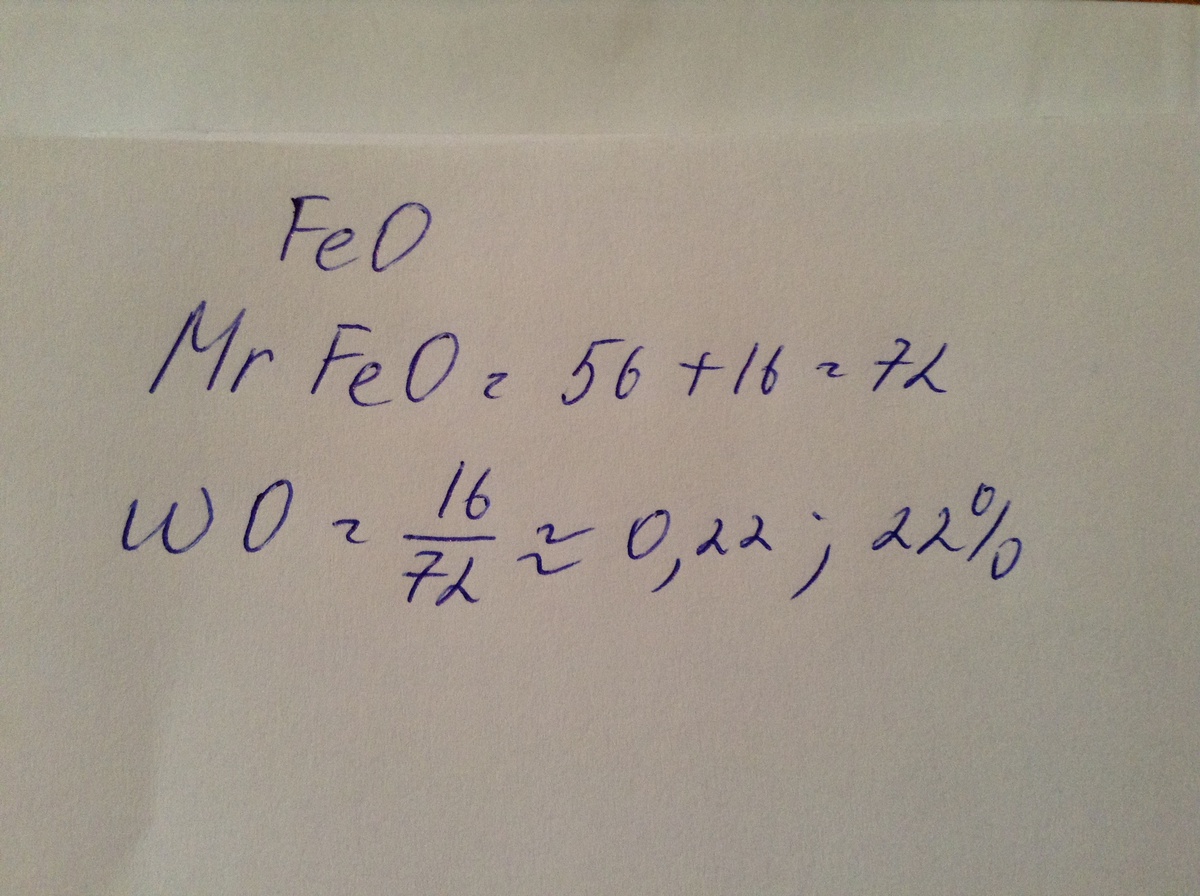 FeO
Mr FeO = 56 + 16 = 72
w O = 16/72 ≈ 0,22 ; 22%